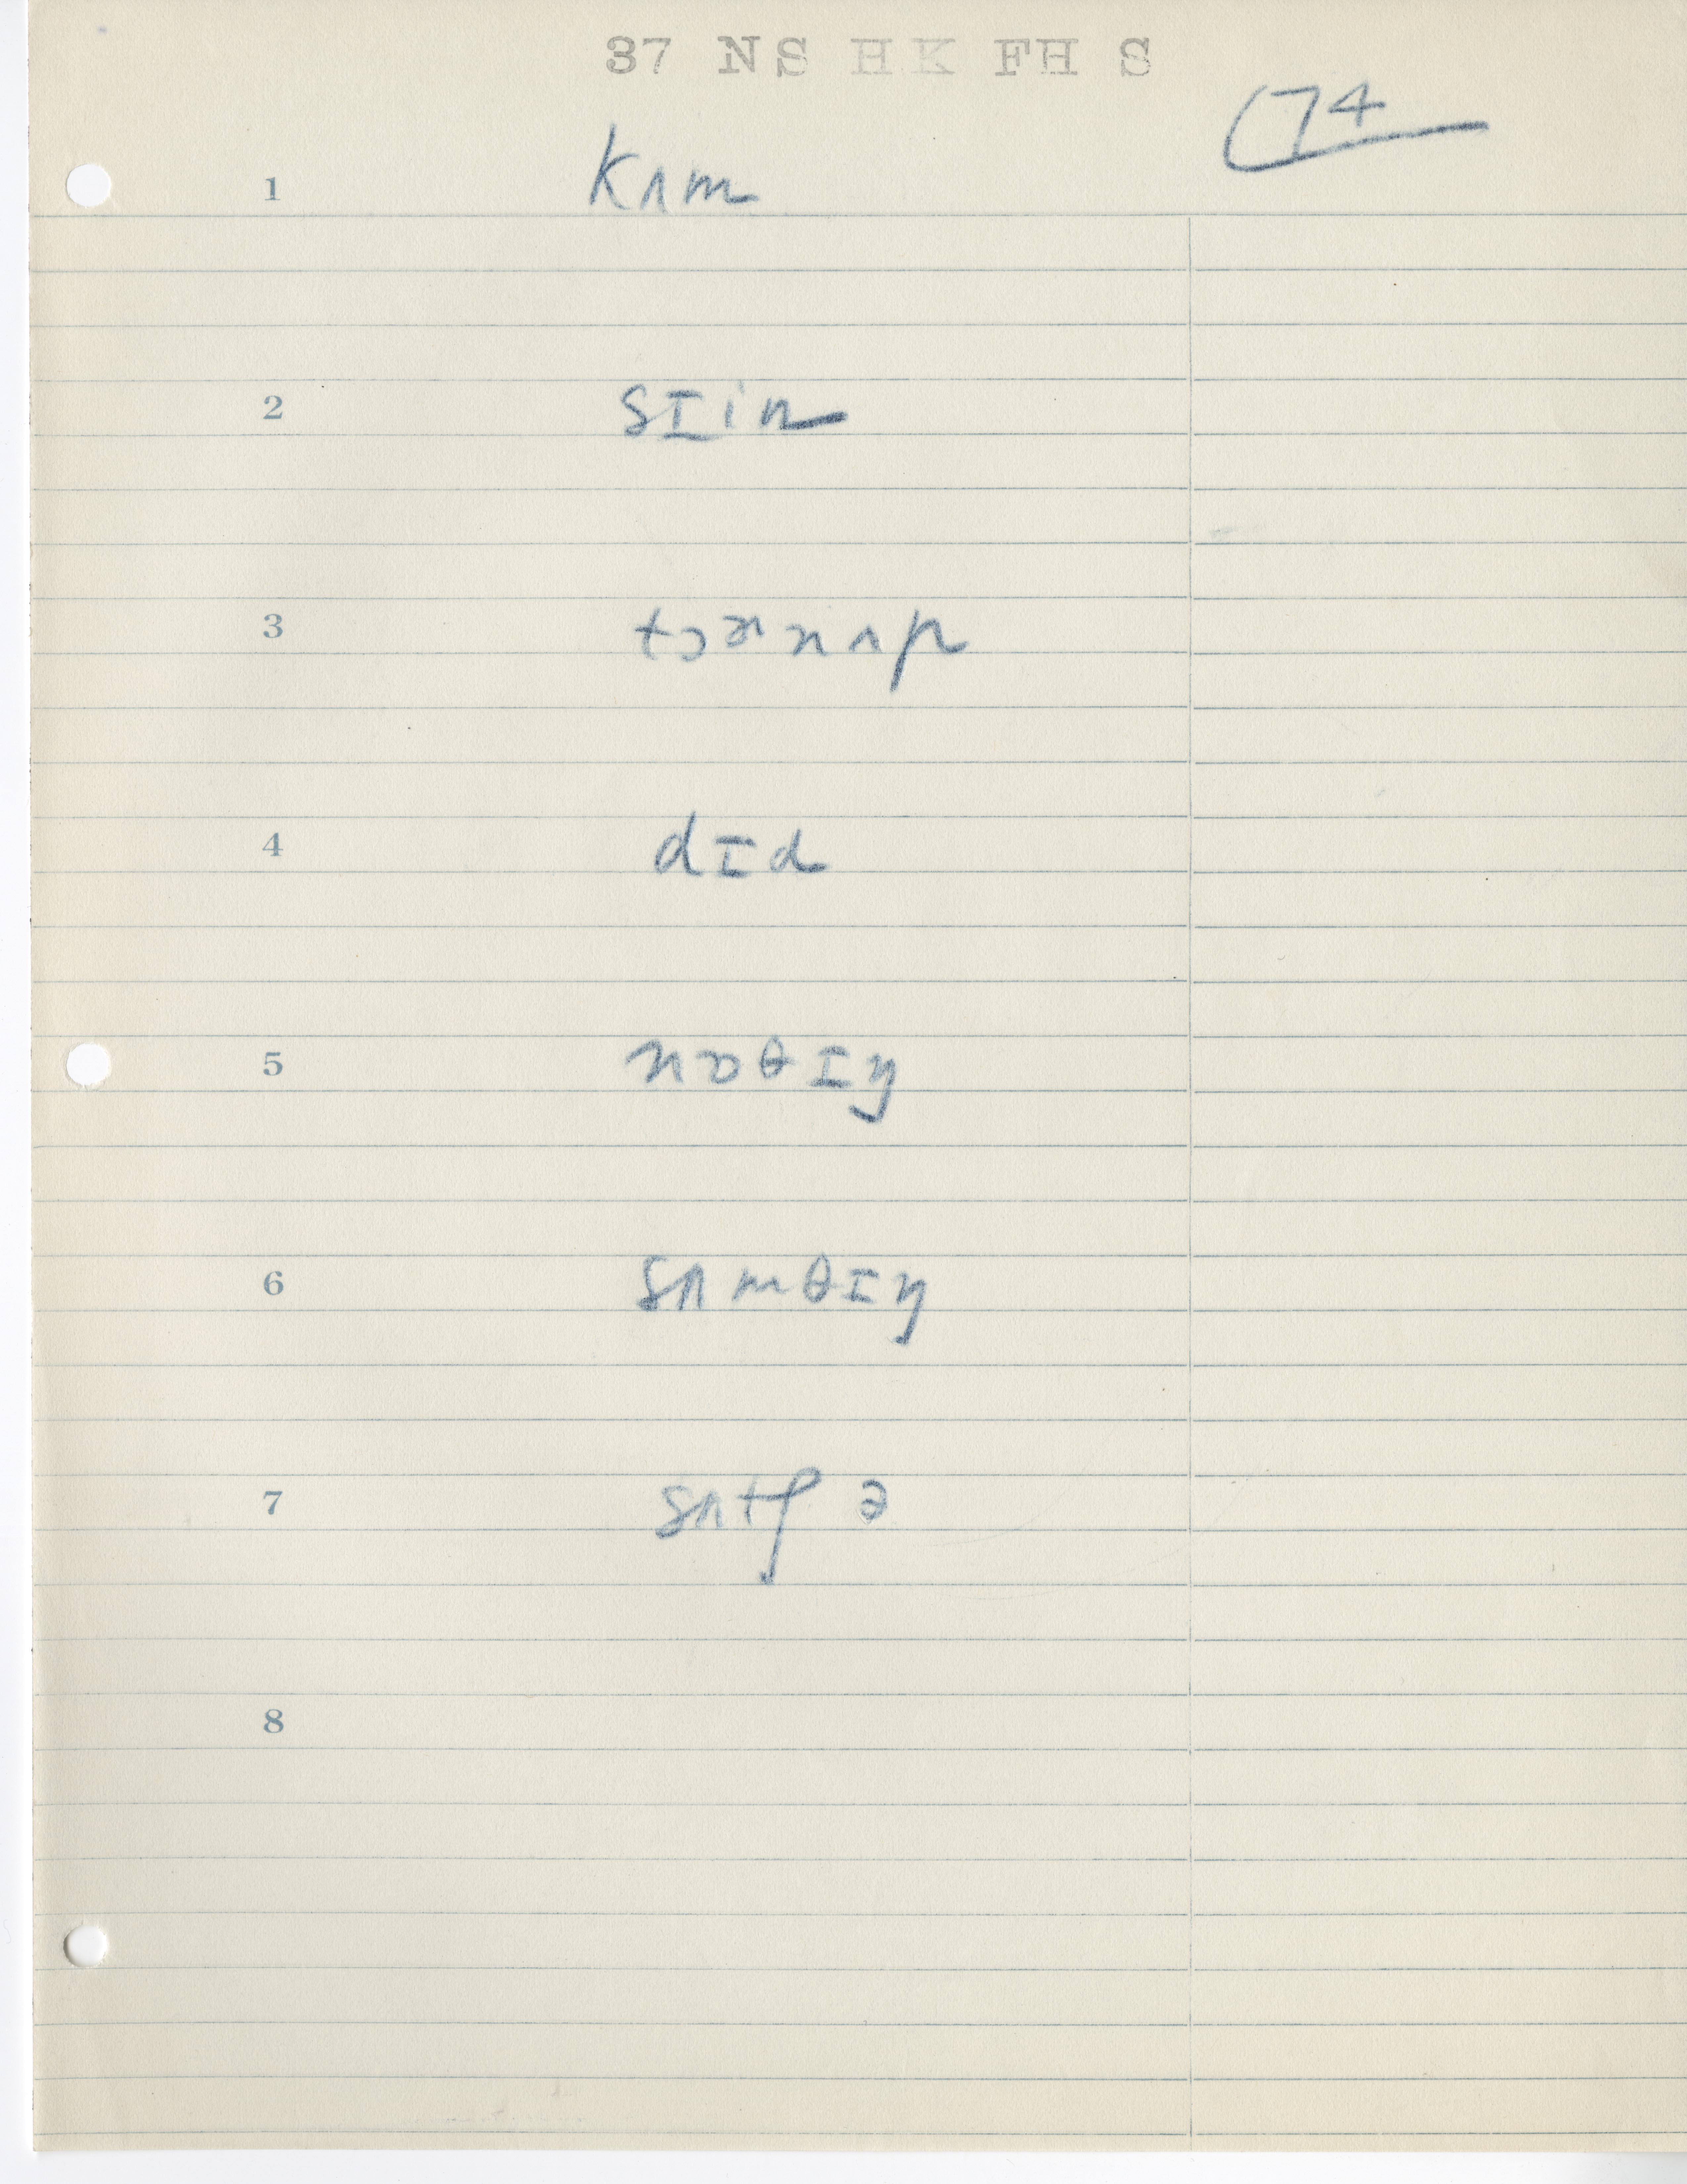 37 NS HK FH S
74
1 kʌm
2 sɪin
3
4 dɪd
5 nɒθɪŋ
6 sʌmθɪŋ
7 sʌtʃ ə
8